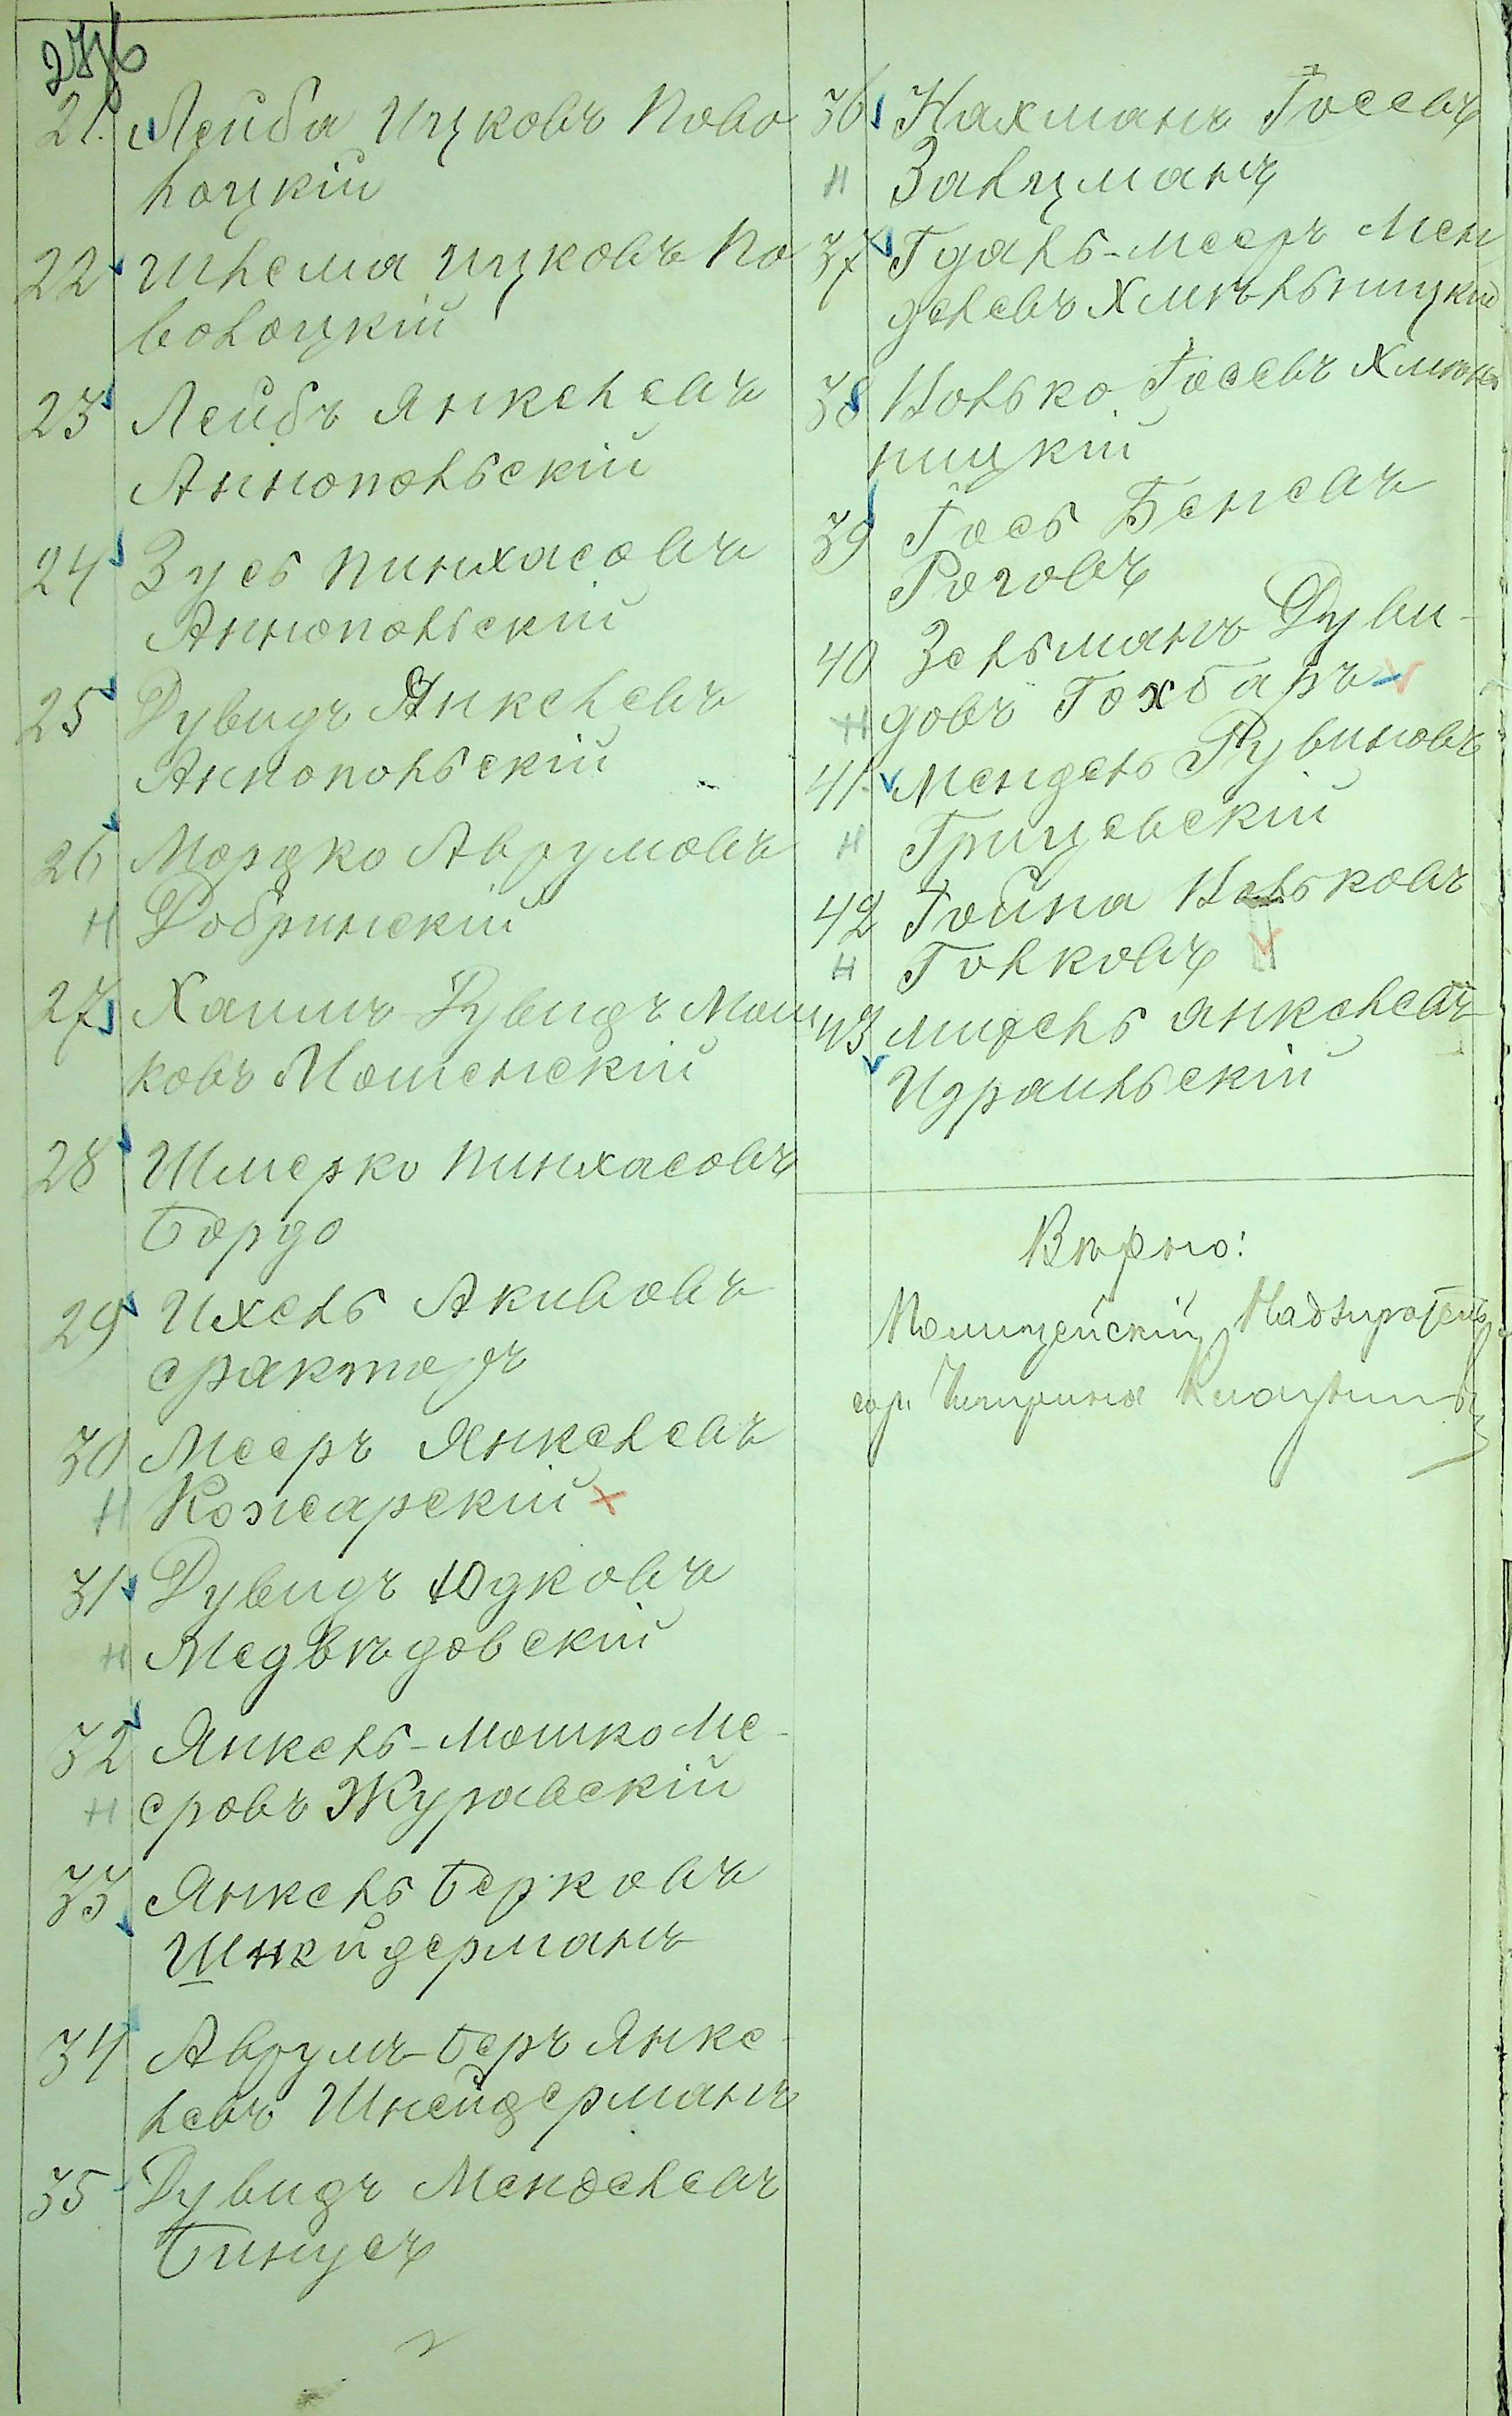 21. Лейба Ицковъ Пово
лоцкій
22 Шлема Ицковъ По
волоцкій
23 Лейбъ Янкелевъ
Аннопольскій
24 Зусь Пинхасовъ
Аннопольскій
25 Дувидъ Янкелевъ
Аннопольскій
26 Моршко Аврумовъ
Н Добринскій
27 Хаимъ-Дувидъ Мош
ковъ Мошенскій
28 Шмерко Пинхасовъ
Бордо
29 Ихель Акивовъ
Фракторъ
30 Мееръ Янкелевъ
Н Кожарскій
31 Дувидъ Юдковъ
Н Медвѣдовскій
32 Янкель-Мошко Ме-
Н еровъ Журавскій
33 Янкель Берковъ
Шнейдерманъ
34 Аврумъ-Беръ Янке-
левъ Шнейдерманъ
35 Дувидъ Менделевъ
Бинусъ
36 Нахманъ Іосевъ
Н Залцманъ
37 Гдаль-Мееръ Мен
делевъ Хмѣльницкій
38 Нолько Іосевъ Хмѣль
ницкій
39 Іось Беневъ
Роговъ
40 Зельманъ Дуви-
Н довъ Гохбаръ
41. Мендель Рувиновъ
Н Грицевскій
42 Іойна Нольковъ
Н Голковъ
43 Михель Янкелевъ
Израильскій
Вѣрно:
Полицейскій Надзиратель
гор. Чигирина